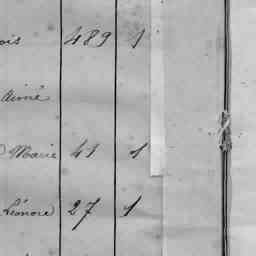 ois 489 1
Aimé
Marie 41 1
Léonore 27 1